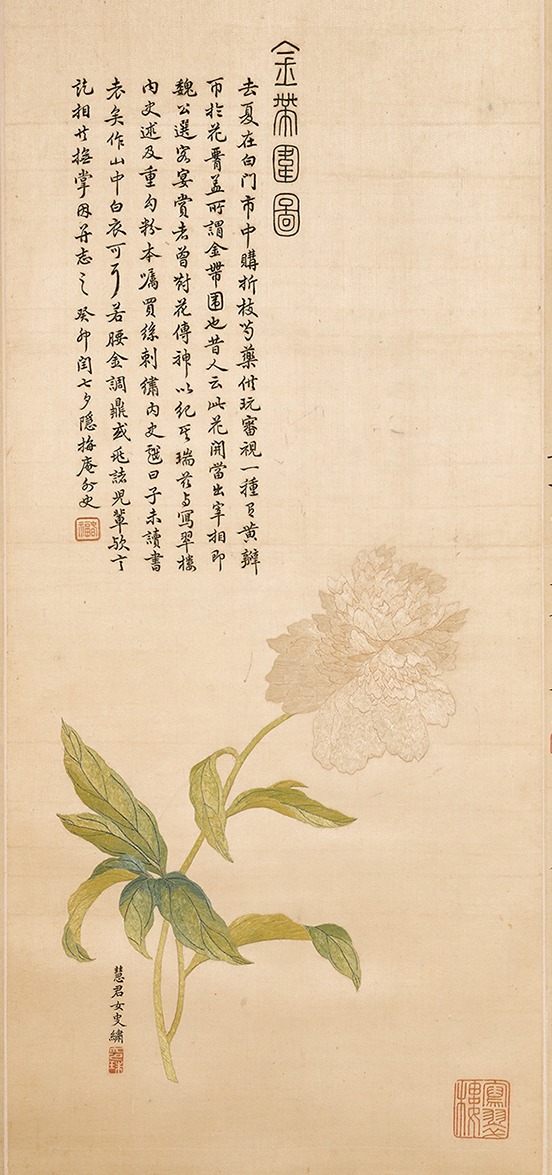 金帶圍圖
去夏在白门市中購折枝芍藥供玩審視一種有黄瓣
帀於花脣盖所謂金帶圍也昔人云此花開當出宰相即
魏公選客宴賞者曾對花傳神以紀其瑞兹与寫翠楼
内史述及重勾粉本嘱買絲刺繡内史戲曰子未讀書
老矣作山中白衣可耳若腰金調鼎或在諸児輩歟言
訖相与撫掌因并志之 癸卯閏七夕隱梅庵外史
慧君女史繡
寫翠樓